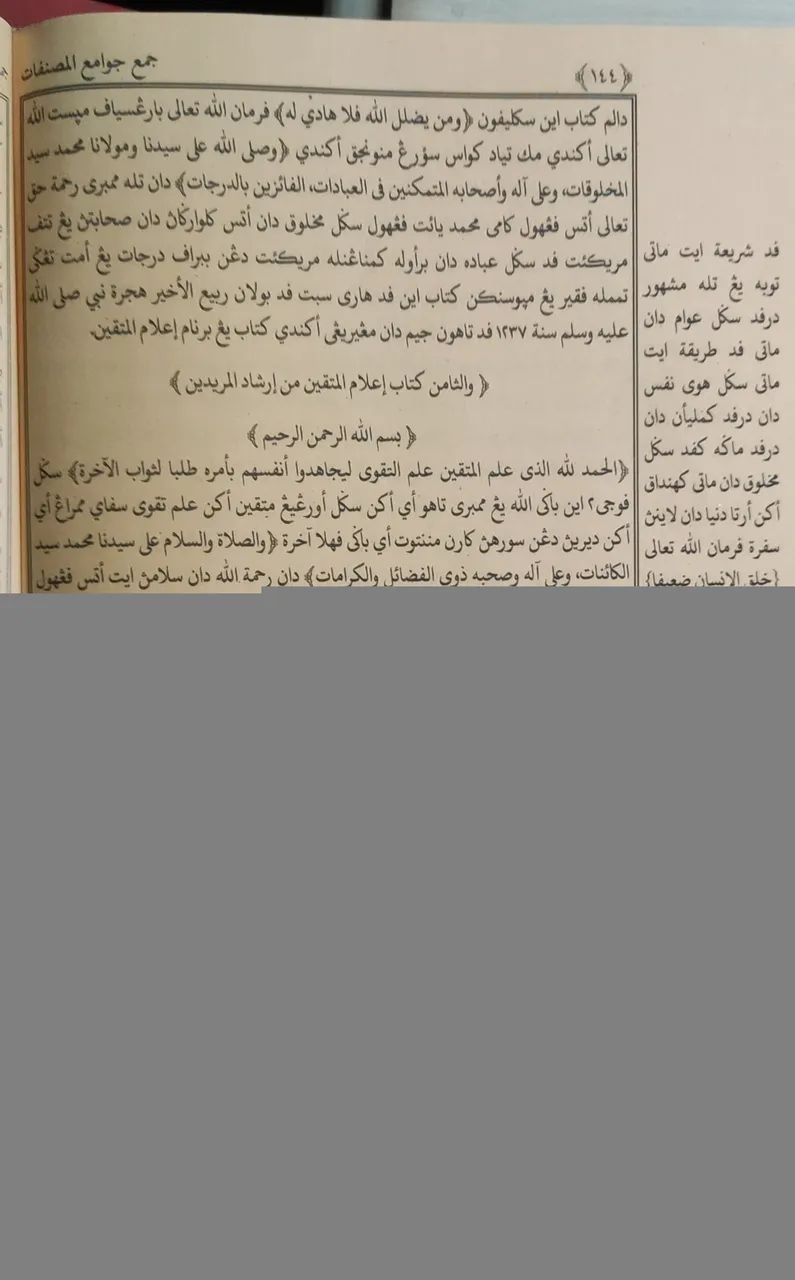 جمع جوامع المصنفات
﴿١٤٤﴾
دالم كتاب اين سكليفون ﴿ومن يضلل الله فلا هادي له﴾ فرمان الله تعالى بارڠسياف مپست الله
تعالى أكندي مك تياد كواس سؤرڠ منونجق أكندي ﴿وصلى الله على سيدنا ومولانا محمد سيد
المخلوقات، وعلى آله وأصحابه المتمكنين فى العبادات، الفائزين بالدرجات﴾ دان تله ممبرى رحمة حق
تعالى أتس فڠهول كامى محمد يائت فڠهول سكل مخلوق دان أتس كلوارݢاڽ دان صحابتڽ يڠ تتف
مريكئت فد سكل عباده دان برأوله كمناڠنله مريكئت دڠن ببراف درجات يڠ أمت تڠݢى
تممله فقير يڠ مپوسنكن كتاب اين فد هارى سبت فد بولان ربيع الأخير هجرة نبي صلى الله
عليه وسلم سنة ١٢٣٧ فد تاهون جيم دان مڠيريڠى أكندي كتاب يڠ برنام إعلام المتقين.
﴿ والثامن كتاب إعلام المتقين من إرشاد المريدين ﴾
﴿ بسم الله الرحمن الرحيم ﴾
﴿الحمد لله الذى علم المتقين علم التقوى ليجاهدوا أنفسهم بأمره طلبا لثواب الآخرة﴾ سكل
فوجى٢ اين باݢى الله يڠ ممبرى تاهو أي أكن سكل أورڠيڠ متقين أكن علم تقوى سفاي ممراڠ أي
أكن ديريڽ دڠن سورهڽ كارن مننتوت أي باݢى فهلا آخرة ﴿والصلاة والسلام على سيدنا محمد سيد
الكائنات، وعلى آله وصحبه ذوى الفضائل والكرامات﴾ دان رحمة الله دان سلامڽ ايت أتس فڠهول
فد شريعة ايت ماتى
توبه يڠ تله مشهور
درفد سكل عوام دان
ماتى فد طريقة ايت
ماتى سكل هوى نفس
دان درفد كمليأن دان
درفد ماكه كفد سكل
مخلوق دان ماتى كهنداق
أكن أرتا دنيا دان لاينڽ
سفرة فرمان الله تعالى
{خلق الإنسان ضعيفا}